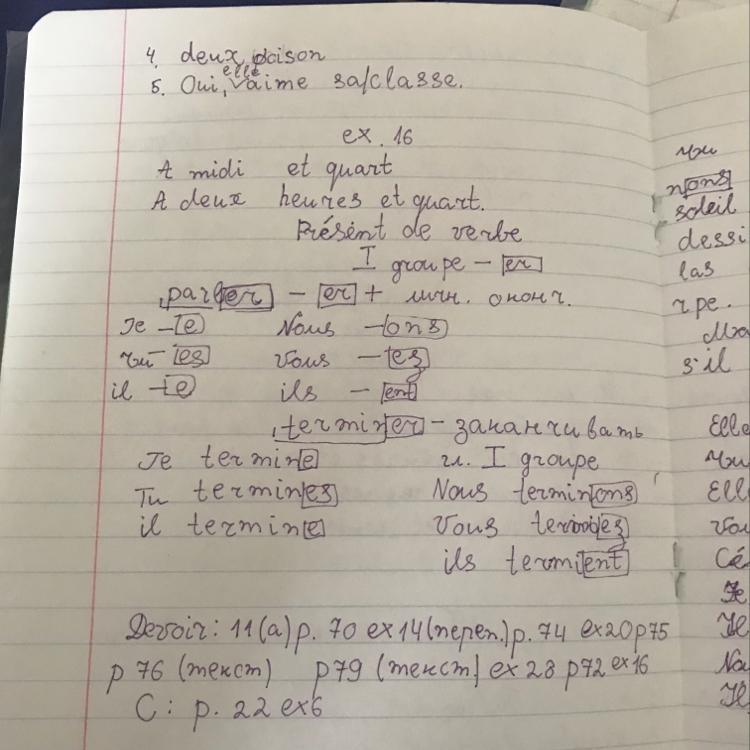 4. deux poison
5. Oui, elle aime sa/classe.
ex. 16
A midi et quart
A deux heures et quart.
Présent de verbe
I groupe – er
parler – er + личн. оконч.
Je – e Nous – ons
tu – es vous – ez
il – e ils – ent
terminer – заканчивать
Je termine гл. I groupe
Tu termines Nous terminons
il termine Vous
ils termient
Devoir: 11(a) p. 70 ex 14 (переп.) p. 74 ex 20 p 75
p 76 (текст) p 79 (текст) ex 28 p 72 ex 16
C: p. 22 ex 6
nons
soleil
dessi
las
гре.
s'il
Elle
Elle
vou
Cé
Je
Il
Na
Il